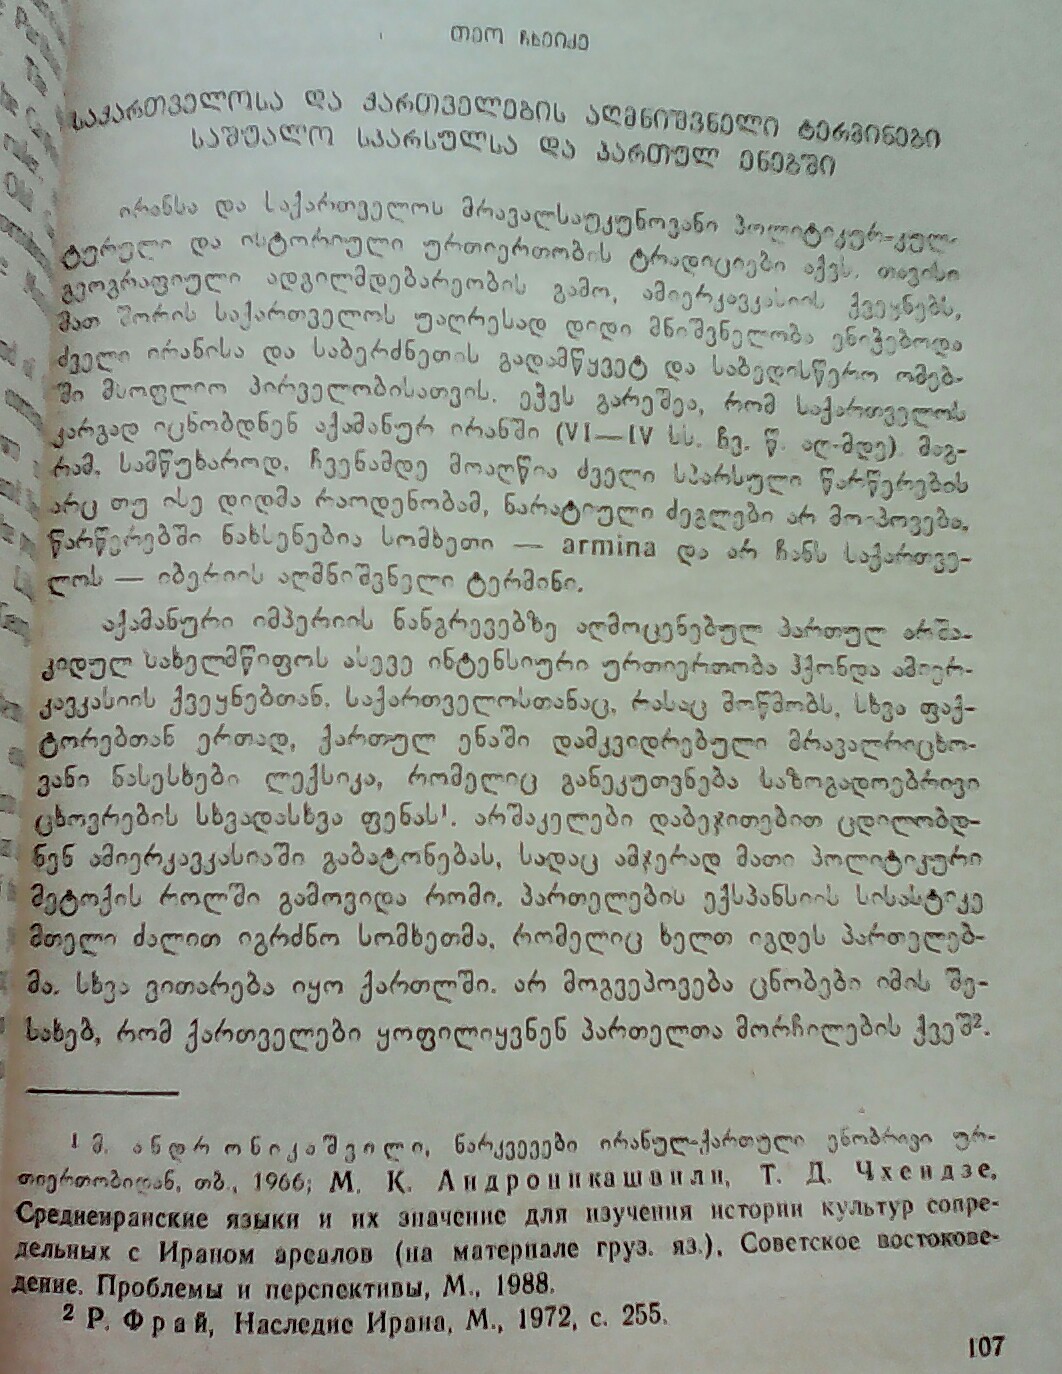 თეო ჩხეიძე
საქართველოსა და ქართველების აღმნიშვნელი ტერმინები
საშუალო სპარსულსა და პართულ ენებში
ირანსა და საქართველოს მრავალსაუკუნოვანი პოლიტიკურ-კულ-
ტურული და ისტორიული ურთიერთობის ტრადიციები აქვს. თავისი
გეოგრაფიული ადგილმდებარეობის გამო, ამიერკავკასიის ქვეყნებს,
მათ შორის საქართველოს უაღრესად დიდი მნიშვნელობა ენიჭებოდა
ძველი ირანისა და საბერძნეთის გადამწყვეტ და საბედისწერო ომებ-
ში მსოფლიო პირველობისათვის. ეჭვს გარეშეა, რომ საქართველოს
კარგად იცნობდნენ აქამანურ ირანში (VI—IV სს. ჩვ. წ. აღ-მდე). მაგ-
რამ, სამწუხაროდ, ჩვენამდე მოაღწია ძველი სპარსული წარწერების
არც თუ ისე დიდმა რაოდენობამ, ნარატიული ძეგლები არ მოიპოვება.
წარწერებში ნახსენებია სომხეთი — armina და არ ჩანს საქართვე-
ლოს — იბერიის აღმნიშვნელი ტერმინი.
აქამანური იმპერიის ნანგრევებზე აღმოცენებულ პართულ არშა-
კიდულ სახელმწიფოს ასევე ინტენსიური ურთიერთობა ჰქონდა ამიერ-
კავკასიის ქვეყნებთან, საქართველოსთანაც, რასაც მოწმობს, სხვა ფაქ-
ტორებთან ერთად, ქართულ ენაში დამკვიდრებული მრავალრიცხო-
ვანი ნასესხები ლექსიკა, რომელიც განეკუთვნება საზოგადოებრივი
ცხოვრების სხვადასხვა ფენას¹. არშაკელები დაბეჯითებით ცდილობდ-
ნენ ამიერკავკასიაში გაბატონებას, სადაც ამჯერად მათი პოლიტიკური
მეტოქის როლში გამოვიდა რომი. პართელების ექსპანსიის სისასტიკე
მთელი ძალით იგრძნო სომხეთმა, რომელიც ხელთ იგდეს პართელებ-
მა. სხვა ვითარება იყო ქართლში. არ მოგვეპოვება ცნობები იმის შე-
სახებ, რომ ქართველები ყოფილიყვნენ პართელთა მორჩილების ქვეშ².
¹ მ. ანდრონიკაშვილი, ნარკვევები ირანულ-ქართული ენობრივი ურ-
თიერთობიდან, თბ., 1966; М. К. Андроникашвили, Т. Д. Чхеидзе,
Среднеиранские языки и их значение для изучения истории культур сопре-
дельных с Ираном ареалов (на материале груз. яз.), Советское востокове-
дение. Проблемы и перспективы, М., 1988.
² Р. Фрай, Наследие Ирана, М., 1972, с. 255.
107